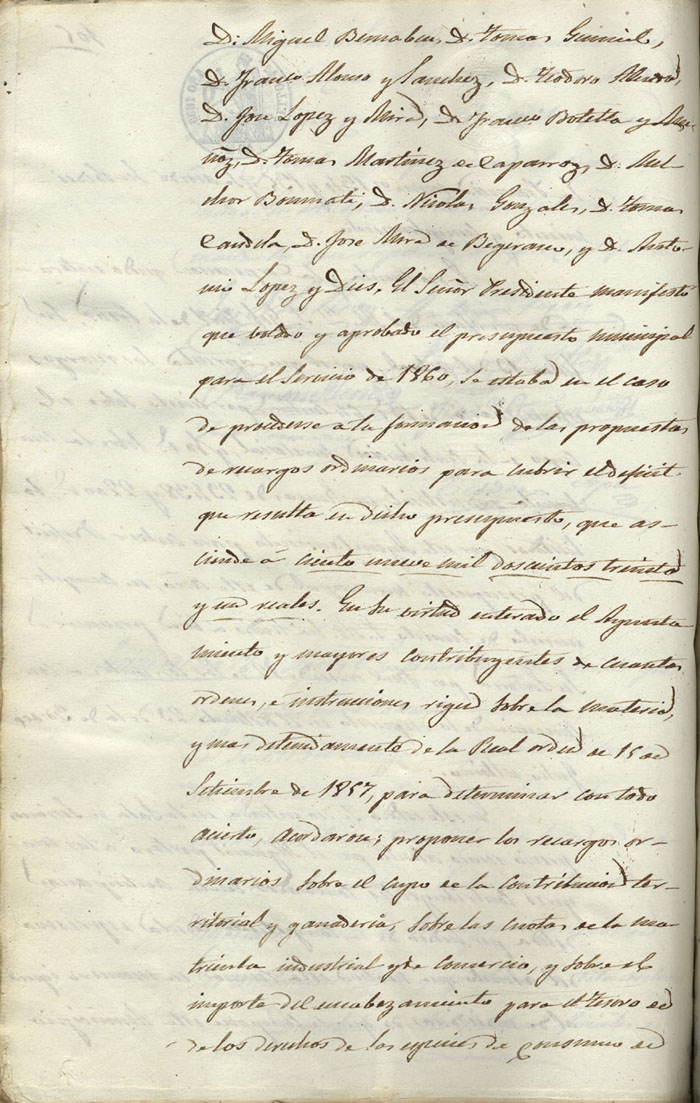 D. Miguel Bernabeu, D. Tomas Guiniel,
D. Franco Alonso y Sanchez, D. Teodoro Alted,
D. Jose Lopez y Mira, D. Franco Botella y Mu-
ñoz, D. Tomas Martinez de Caparroz, D. Mel-
chor Bonmati, D. Nicolas Gonzales, D. Tomas
Candela, D. Jose Mira de Begerano, y D. Anto-
nio Lopez y Dies. El Señor Presidente manifestó
que votado y aprobado el presupuesto municipal
para el Servicio de 1860, se estaba en el caso
de procederse a la formacion de las propuestas
de recargos ordinarios para cubrir el deficit
que resulta en dicho presupuesto, que as-
ciende á ciento nueve mil doscientos treinta
y un reales. En su virtud enterado el Ayunta
miento y mayores contribuyentes de cuantas
ordenes, é instrucciones rigen sobre la materia,
y mas detenidamente de la Real orden de 15 de
Setiembre de 1857, para determinar con todo
acierto, acordaron; proponer los recargos or-
dinarios sobre el cupo de la contribucion ter-
ritorial y ganaderia, sobre las cuotas de la ma-
tricula industrial y de comercio, y sobre el
importe del encabezamiento para el tesoro de
de los derechos de las especies de consumo de